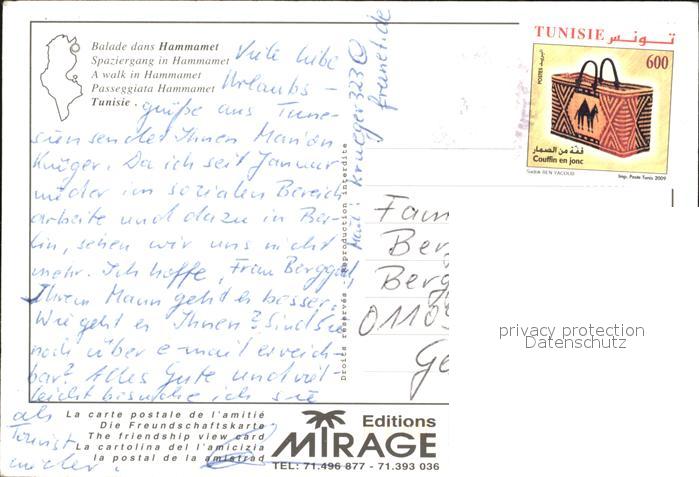 Balade dans Hammamet
Spaziergang in Hammamet
A walk in Hammamet
Passeggiata Hammamet
Tunisie .
Viele liebe
Urlaubs-
grüße aus Tune-
sien sendet Ihnen Marion
Krüger. Da ich seit Januar
wieder im sozialen Bereich
arbeite und dazu in Ber-
lin, sehen wir uns nicht
mehr. Ich hoffe, Frau
Ihrem Mann geht es besser.
Wie geht es Ihnen? Sind Sie
noch über e-mail erreich-
bar? Alles Gute und viel-
leicht besuche ich sie
als
Tourist
wieder.
Mail: krueger323@
freenet.de
Droits réservés - Reproduction interdite
TUNISIE تونس
600
البريد POSTES
قفة من الصمار
Couffin en jonc
Sadok BEN YACOUB
Imp. Poste Tunis 2009
Fam
Ber
Berg
01109
Ge
privacy protection
Datenschutz
La carte postale de l'amitié
Die Freundschaftskarte
The friendship view card
La cartolina del l'amicizia
la postal de la amistrad
Editions
MIRAGE
TEL: 71.496 877 - 71.393 036